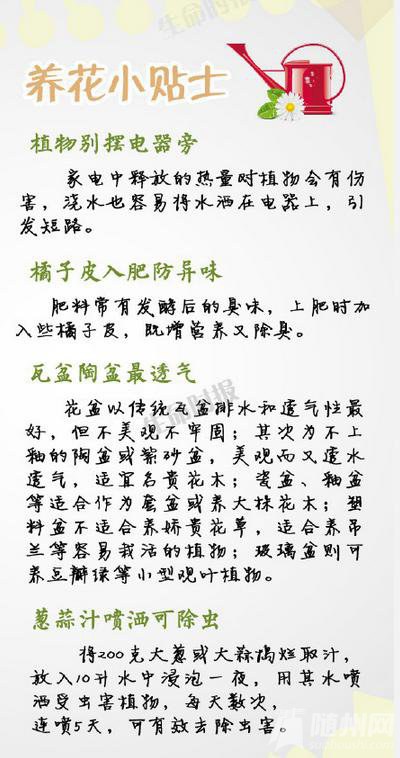 生命时报
养花小贴士
植物别摆电器旁
家电中释放的热量对植物会有伤
害，浇水也容易将水洒在电器上，引
发短路。
橘子皮入肥防异味
肥料常有发酵后的臭味，上肥时加
入些橘子皮，既增营养又除臭。
瓦盆陶盆最透气
生命时报
花盆以传统瓦盆排水和透气性最
好，但不美观不牢固；其次为不上
釉的陶盆或紫砂盆，美观而又透水
透气，适宜名贵花木；瓷盆、釉盆
等适合作为套盆或养大株花木；塑
料盆不适合养娇贵花草，适合养吊
兰等容易栽活的植物；玻璃盆则可
养豆瓣绿等小型观叶植物。
葱蒜汁喷洒可除虫
将200克大葱或大蒜捣烂取汁，
放入10升水中浸泡一夜，用其水喷
洒受虫害植物，每天数次，
连喷5天，可有效去除虫害。
随州网